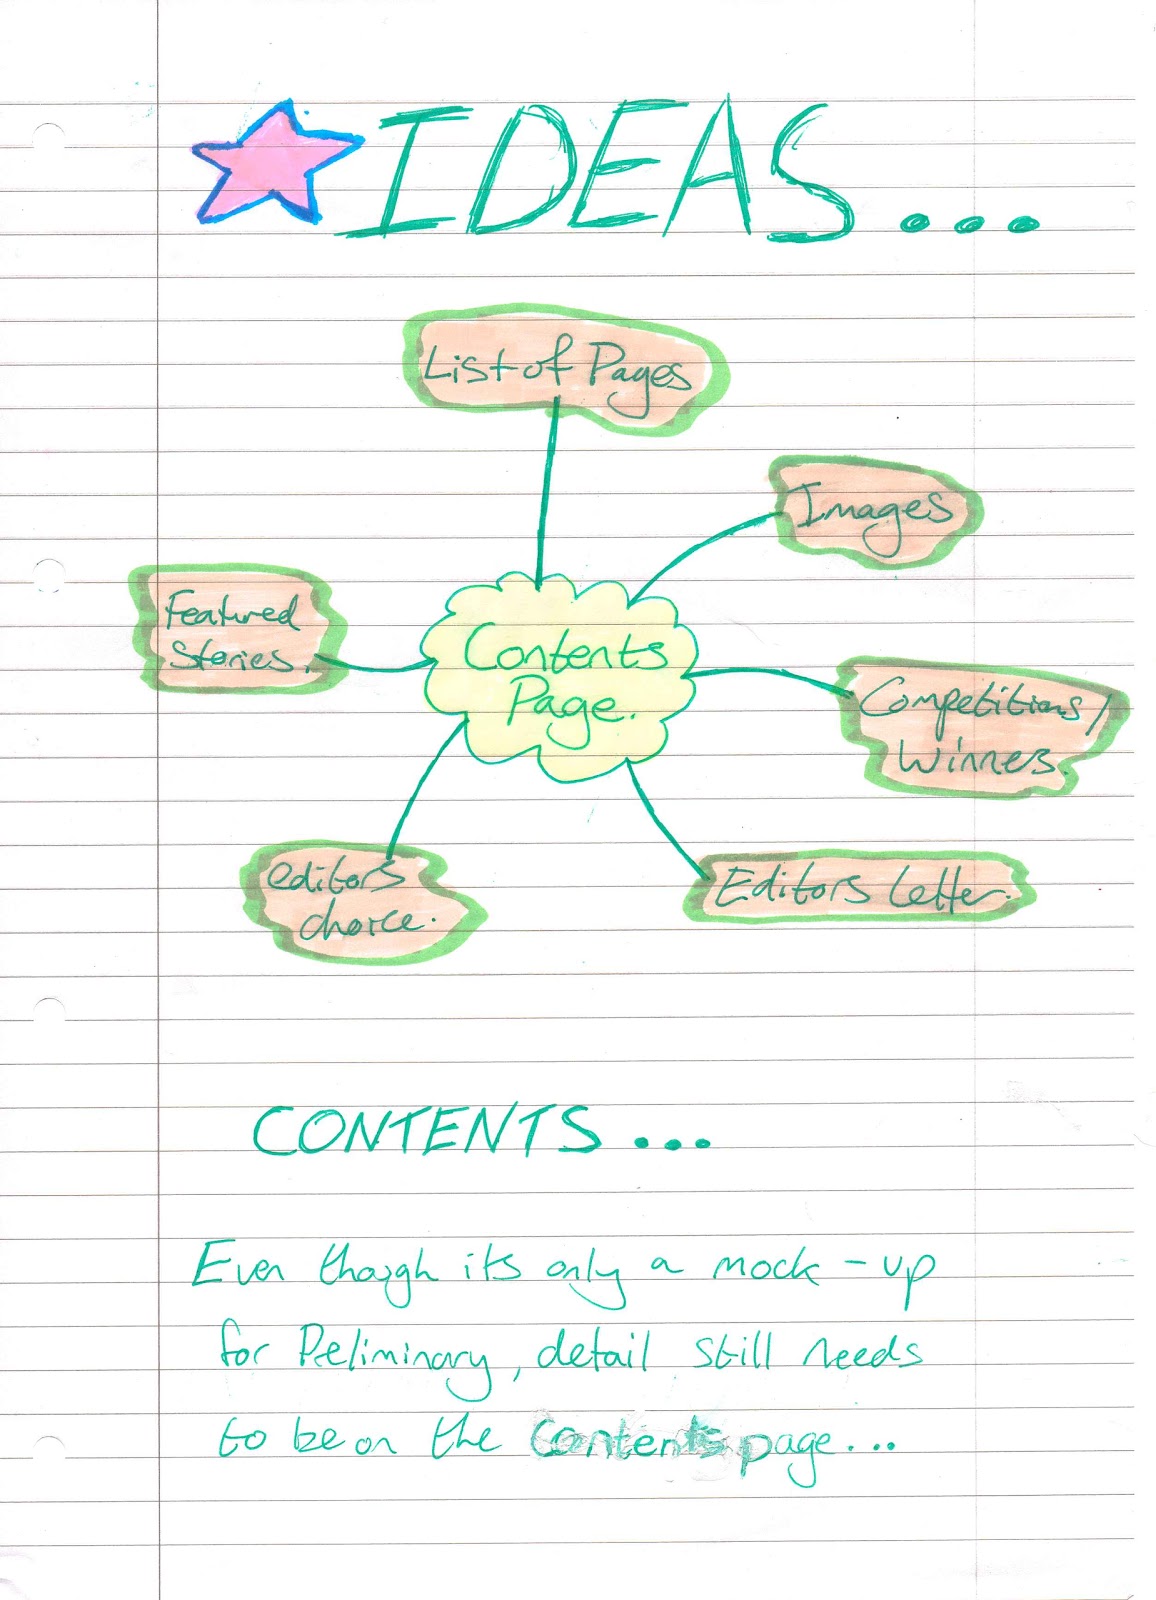 IDEAS...
List of Pages
Images
Featured
Stories.
Contents
Page.
Competitions/
Winners.
editors
choice.
Editors Letter.
CONTENTS...
Even though its only a mock-up
for Preliminary, detail still needs
to be on the Contents page...